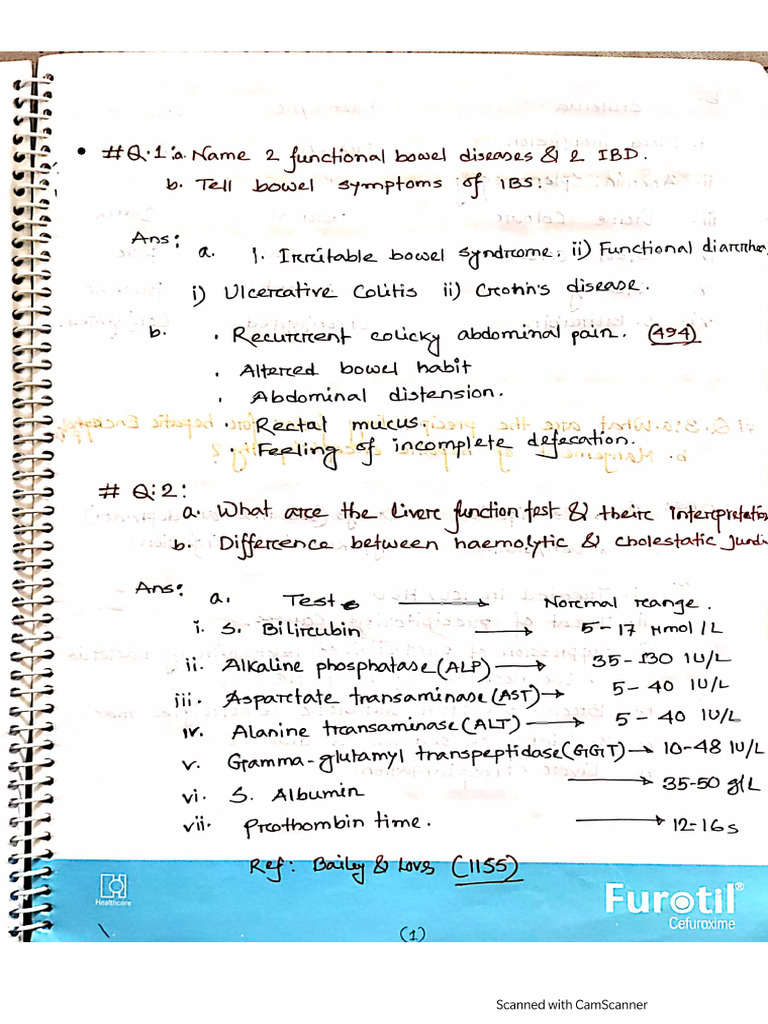 • # Q.1: a. Name 2 functional bowel diseases & 2 IBD.
b. Tell bowel symptoms of IBS:
Ans: a. 1. Irritable bowel syndrome. ii) Functional diarrhea
i) Ulcerative Colitis ii) Crohn's disease.
b. • Recurrent colicky abdominal pain. (494)
• Altered bowel habit
• Abdominal distension.
• Rectal mucus
• Feeling of incomplete defecation.
# Q:2:
a. What are the Liver function test & their interpretation
b. Difference between haemolytic & cholestatic Jundi
Ans: a. Test → Normal range.
i. S. Bilirubin → 5-17 μmol/L
ii. Alkaline phosphatase (ALP) → 35-130 IU/L
iii. Aspartate transaminase (AST) → 5-40 IU/L
iv. Alanine transaminase (ALT) → 5-40 IU/L
v. Gramma-glutamyl transpeptidase (GGT) → 10-48 IU/L
vi. S. Albumin → 35-50 g/L
vii. Prothombin time. → 12-16s
Ref: Bailey & Loves (1155)
Healthcare
Furotil®
Cefuroxime
(1)
Scanned with CamScanner